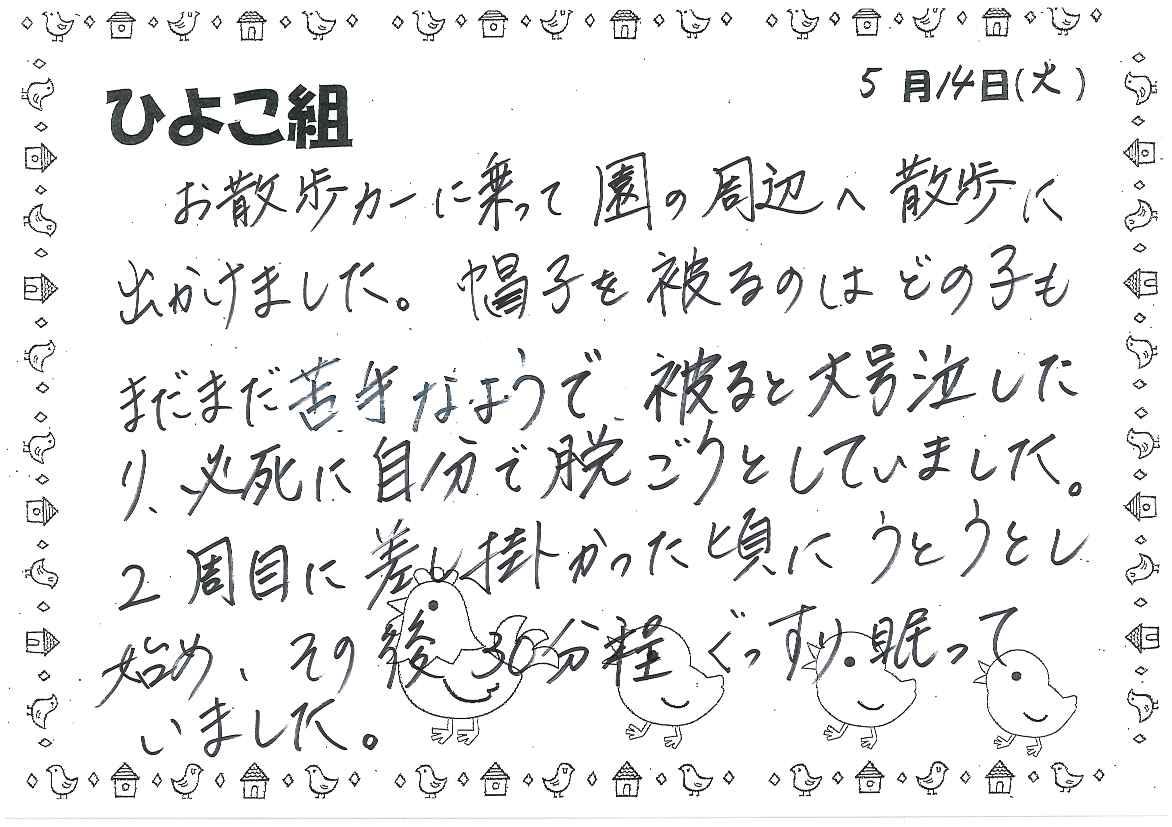 ひよこ組
5月14日(火)
お散歩カーに乗って園の周辺へ散歩に
出かけました。帽子を被るのはどの子も
まだまだ苦手なようで、被ると大号泣した
り、必死に自分で脱ごうとしていました。
2周目に差し掛かった頃にうとうとし
始め、その後30分程ぐっすり眠って
いました。